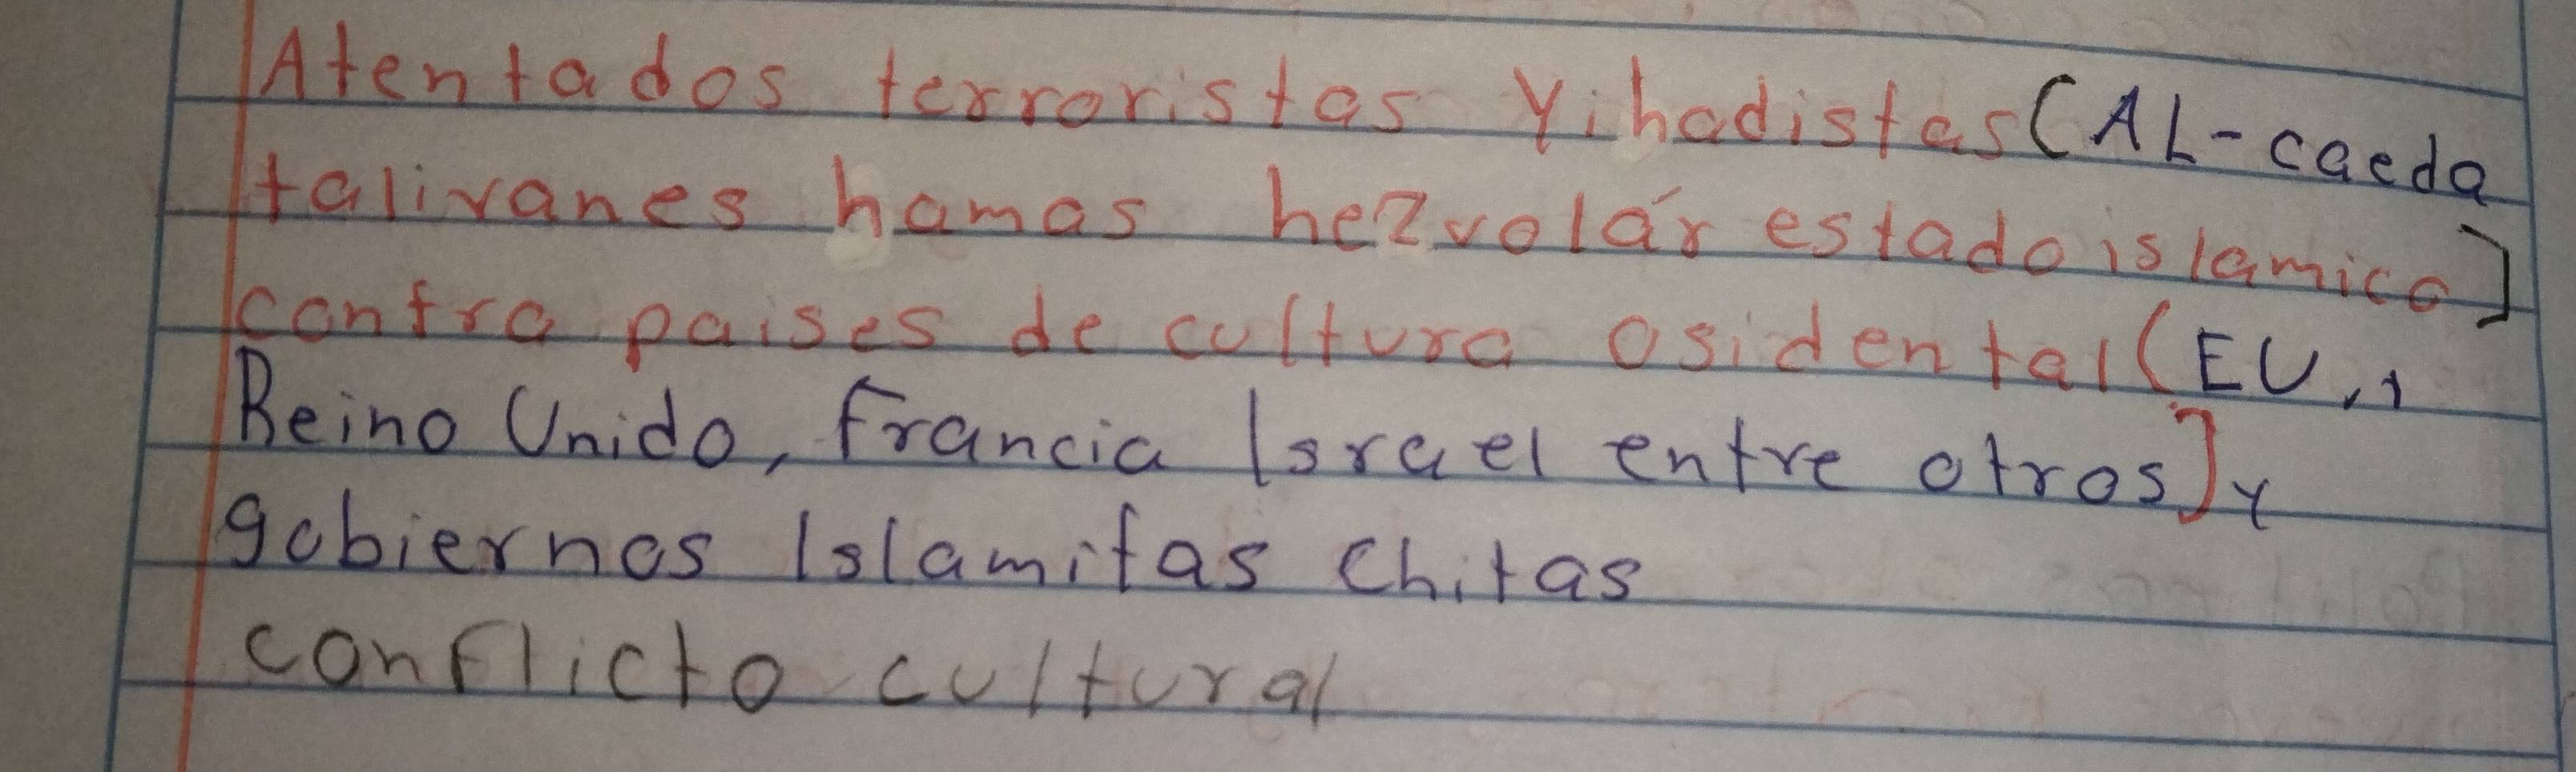 Atentados terroristas Yihadistas (AL-caeda
talivanes hamas hezvolár estado islamico]
contra paises de cultura osidental (EU,,
Reino Unido, Francia Israel entre otros] y
gobiernos Islamitas Chitas
conflicto cultural